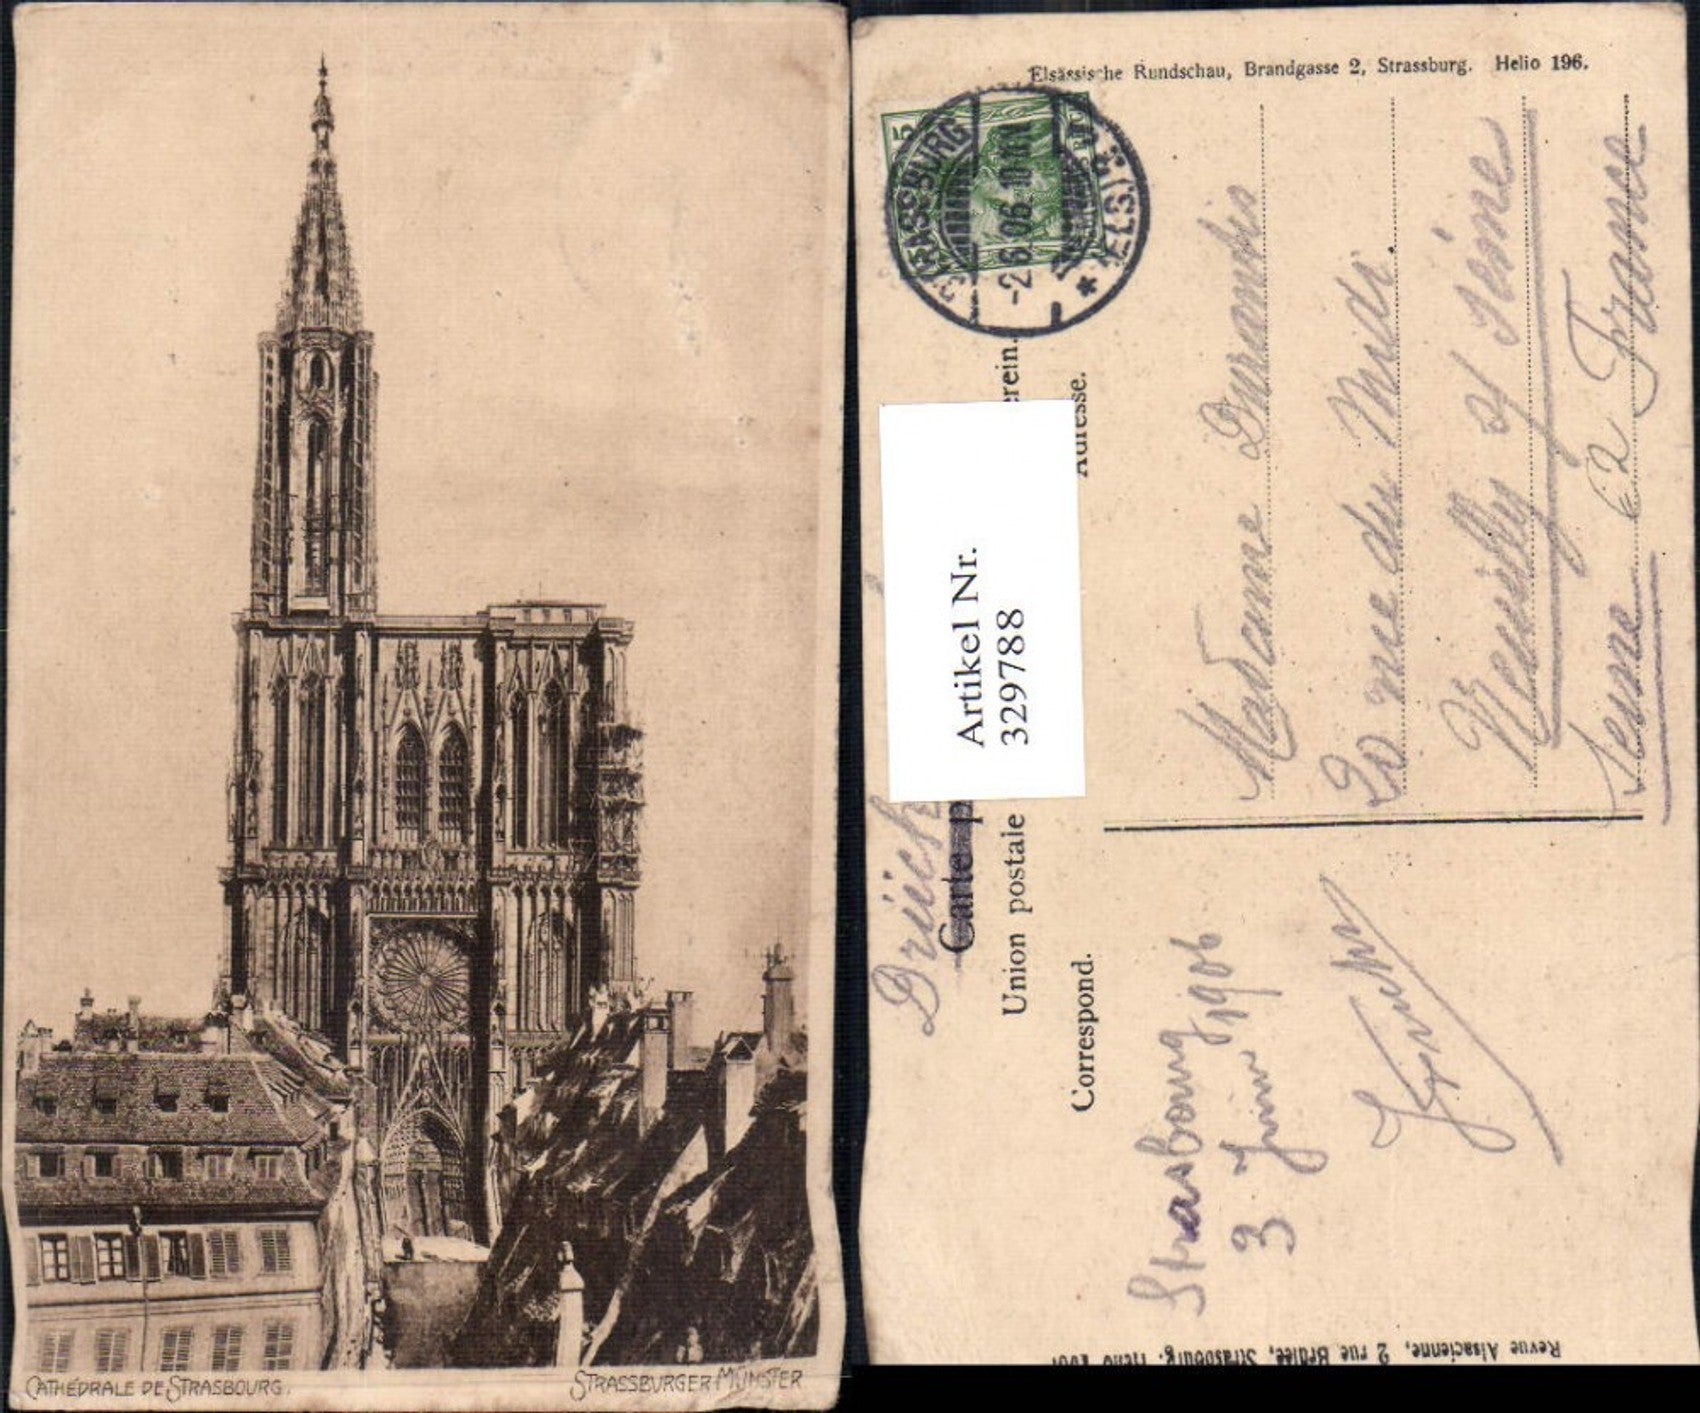 CATHÉDRALE DE STRASBOURG.
STRASSBURGER MÜNSTER
Elsässische Rundschau, Brandgasse 2, Strassburg. Helio 196.
5
STRASSBURG
-2.6.06. 10-11
* (ELS.)
Artikel Nr.
329788
Carte p
Union postale
erein.
Correspond.
Adresse.
Madame Durantis
20 rue du Midi
Neuilly s/ Seine
Seine France
Strasbourg
3 Juin 1906
Revue Alsacienne, 2 rue Brûlée, Strasbourg. Helio